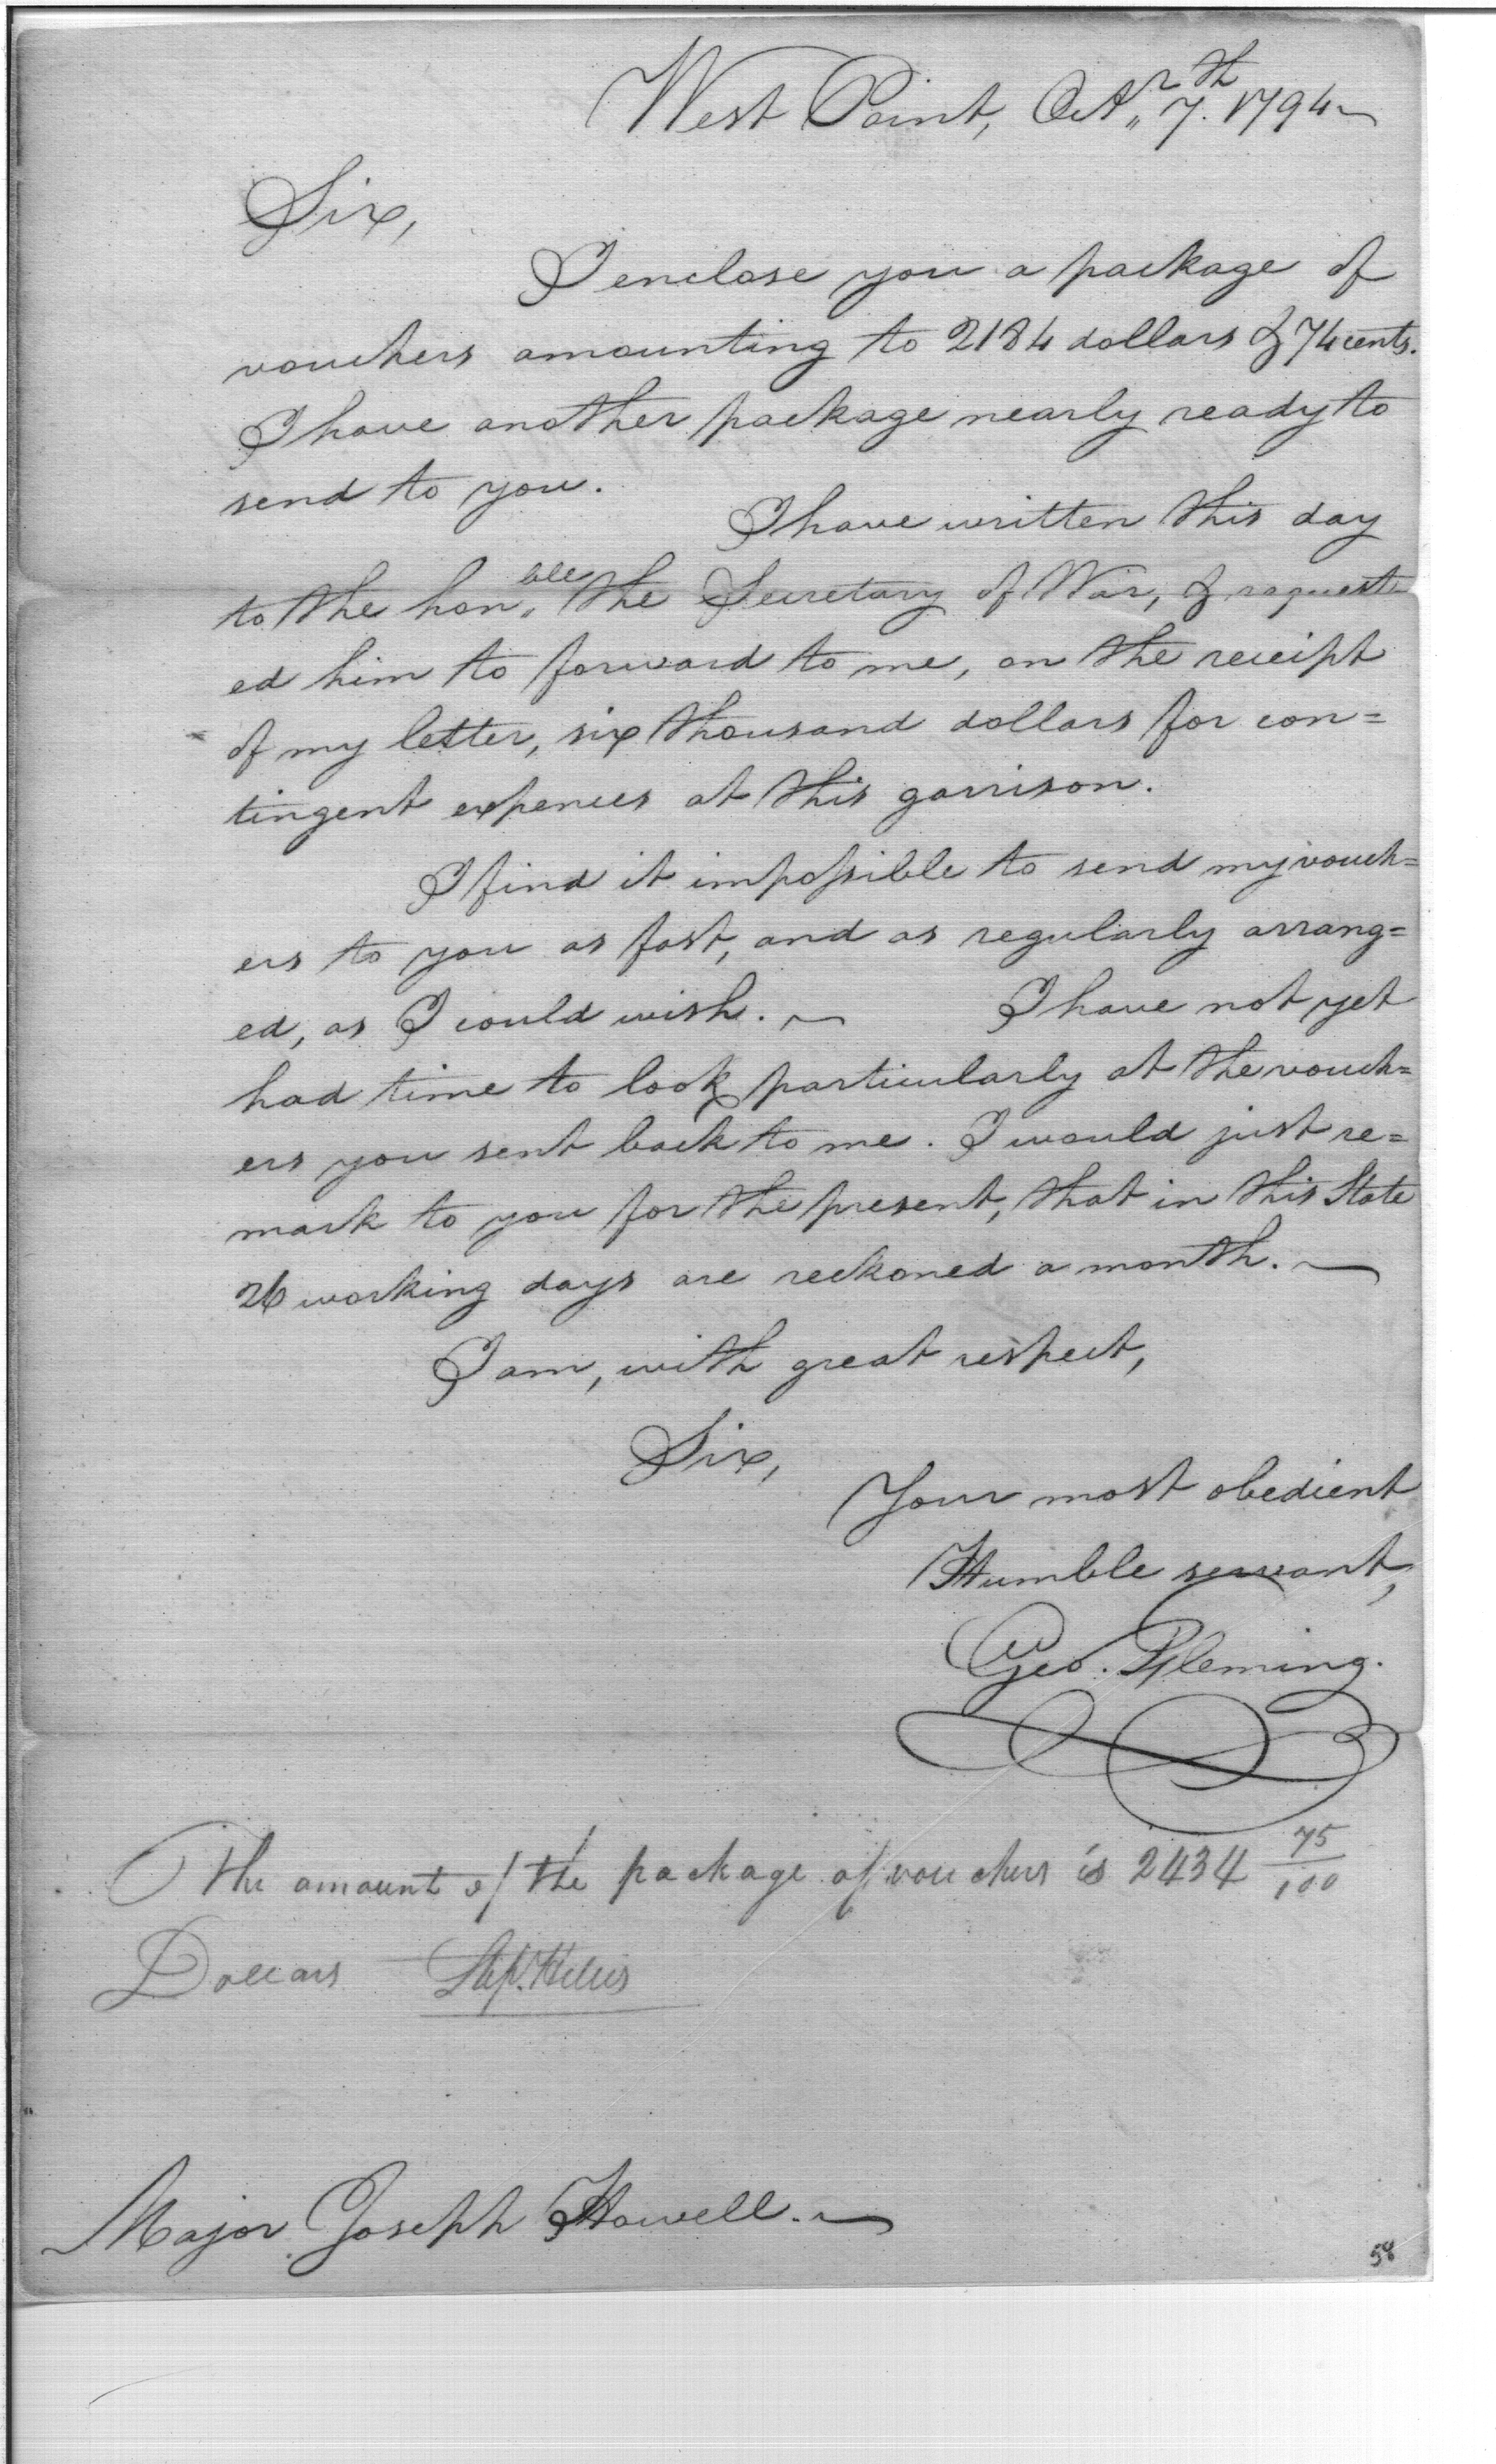 West Point, Octr. 7th. 1794
Sir,
I enclose you a package of
vouchers amounting to 2184 dollars & 74 cents.
I have another package nearly ready to
send to you.
I have written this day
to the honble. the Secretary of War, & request-
ed him to forward to me, on the receipt
of my letter, six thousand dollars for con=
tingent expences at this garrison.
I find it impossible to send my vouch=
ers to you as fast, and as regularly arrang=
ed, as I could wish. ~ I have not yet
had time to look particularly at the vouch=
ers you sent back to me. I would just re=
mark to you for the present, that in this State
26 working days are reckoned a month. ~
I am, with great respect,
Sir,
Your most obedient
Humble servant,
Geo. Fleming.
The amount of the package of vouchers is 2434 75/100
Dollars
Major Joseph Howell. ~
58